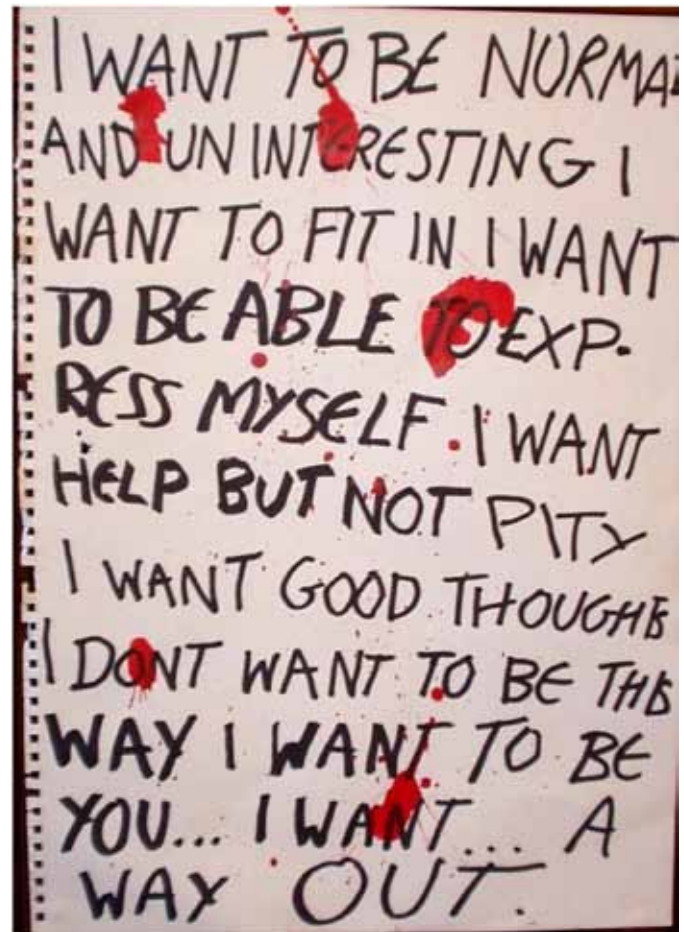 I WANT TO BE NORMAL
AND UN INTERESTING I
WANT TO FIT IN I WANT
TO BE ABLE TO EXP-
RESS MYSELF. I WANT
HELP BUT NOT PITY
I WANT GOOD THOUGHTS
I DONT WANT TO BE THIS
WAY I WANT TO BE
YOU... I WANT... A
WAY OUT.